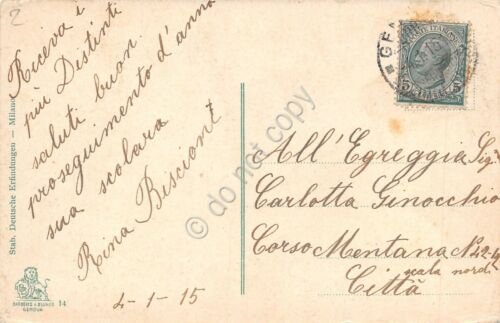 2
Riceva i
più Distinti
saluti buon.
proseguimento d'anno
sua scolara
Rina Biscioni
4-1-15
Stab. Deutsche Erfindungen — Milano
14
GENOVA
GEN
15
All'Egreggia Sig.
Carlotta Ginocchio
Corso Mentana N. 42-4
scala nord
Città
do not copy